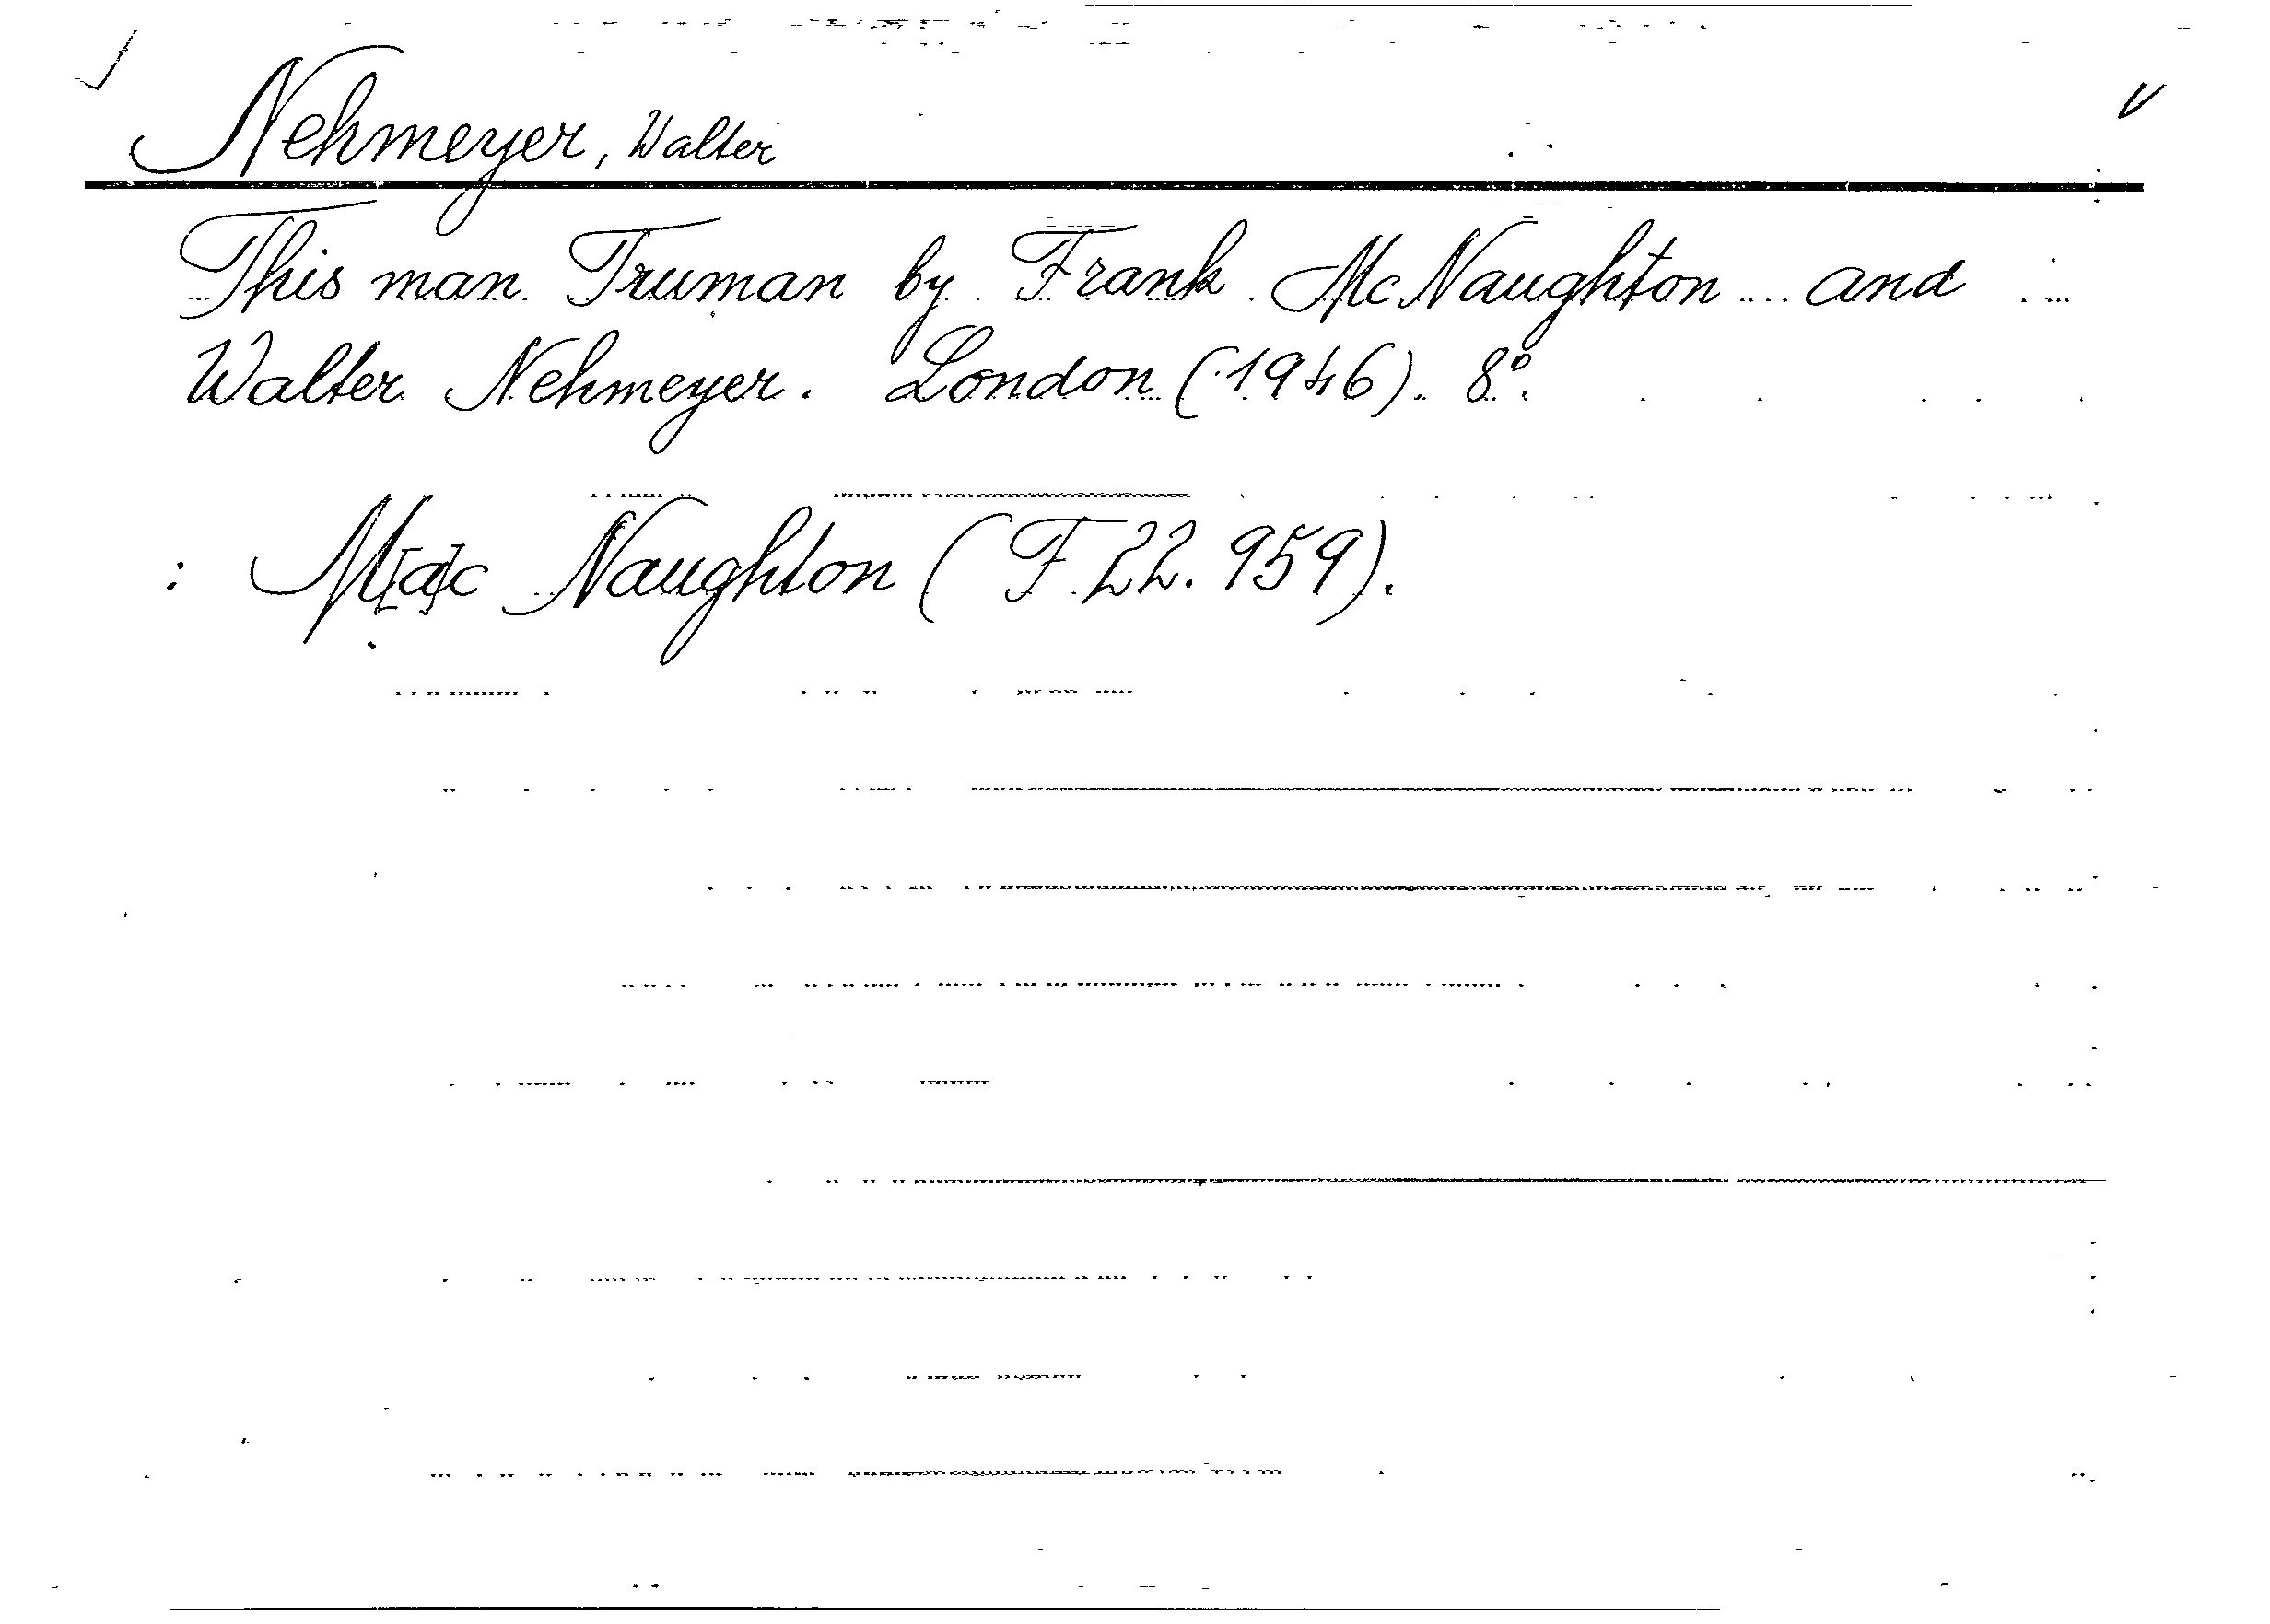 Nehmeyer, Walter
This man Truman by Frank McNaughton and
Walter Nehmeyer. London (1946). 8°.
: M[a]c Naughton (F 22. 959).